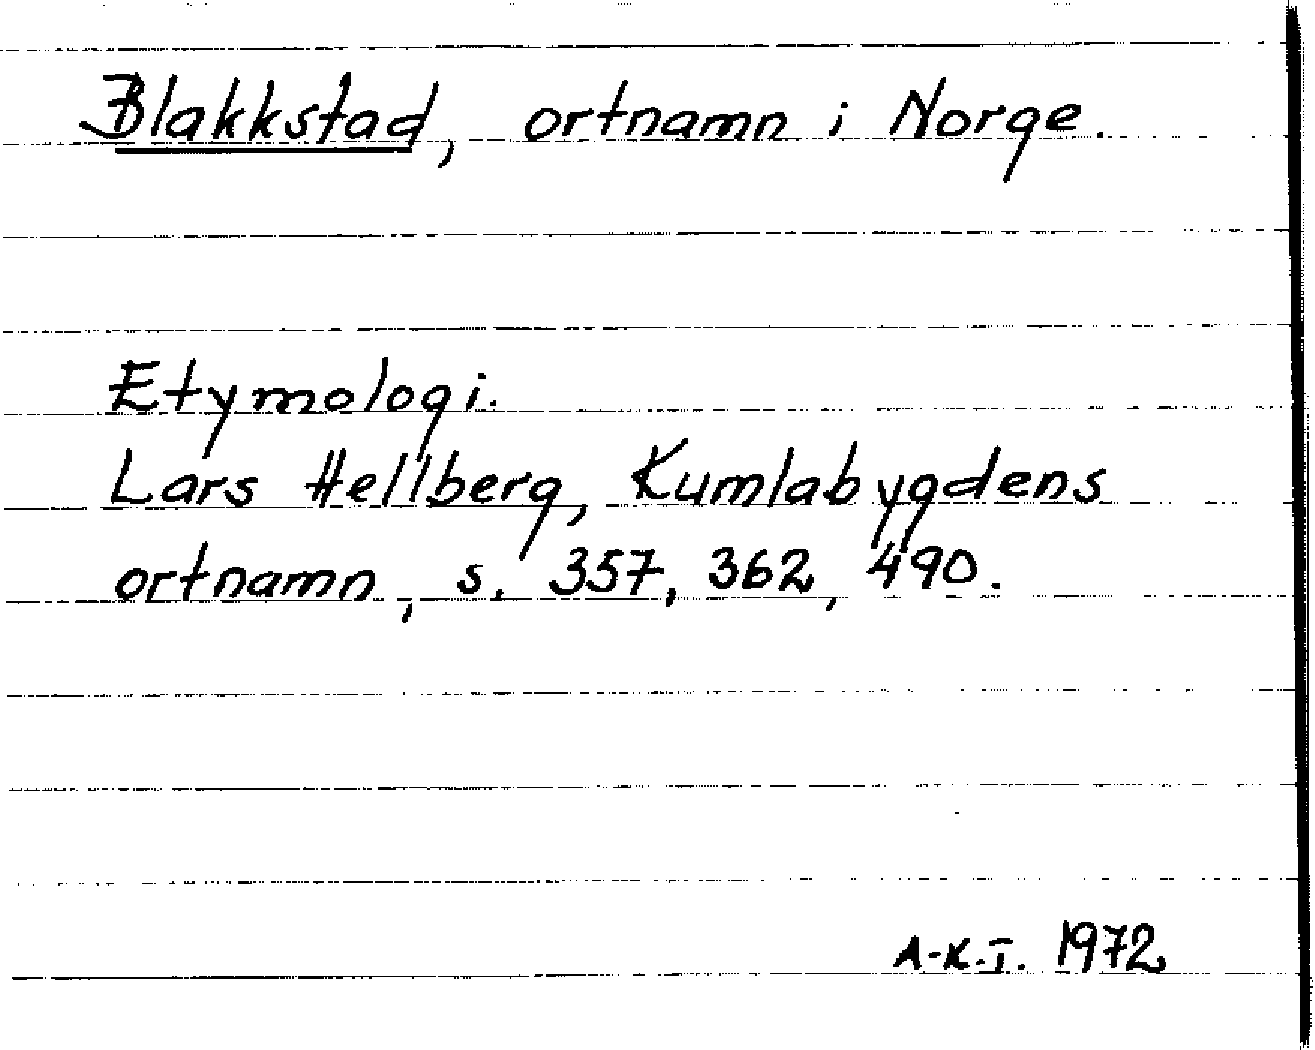 Blakkstad, ortnamn i Norge.
Etymologi.
Lars Hellberg, Kumlabygdens
ortnamn, s. 357, 362, 490.
A-K.I. 1972